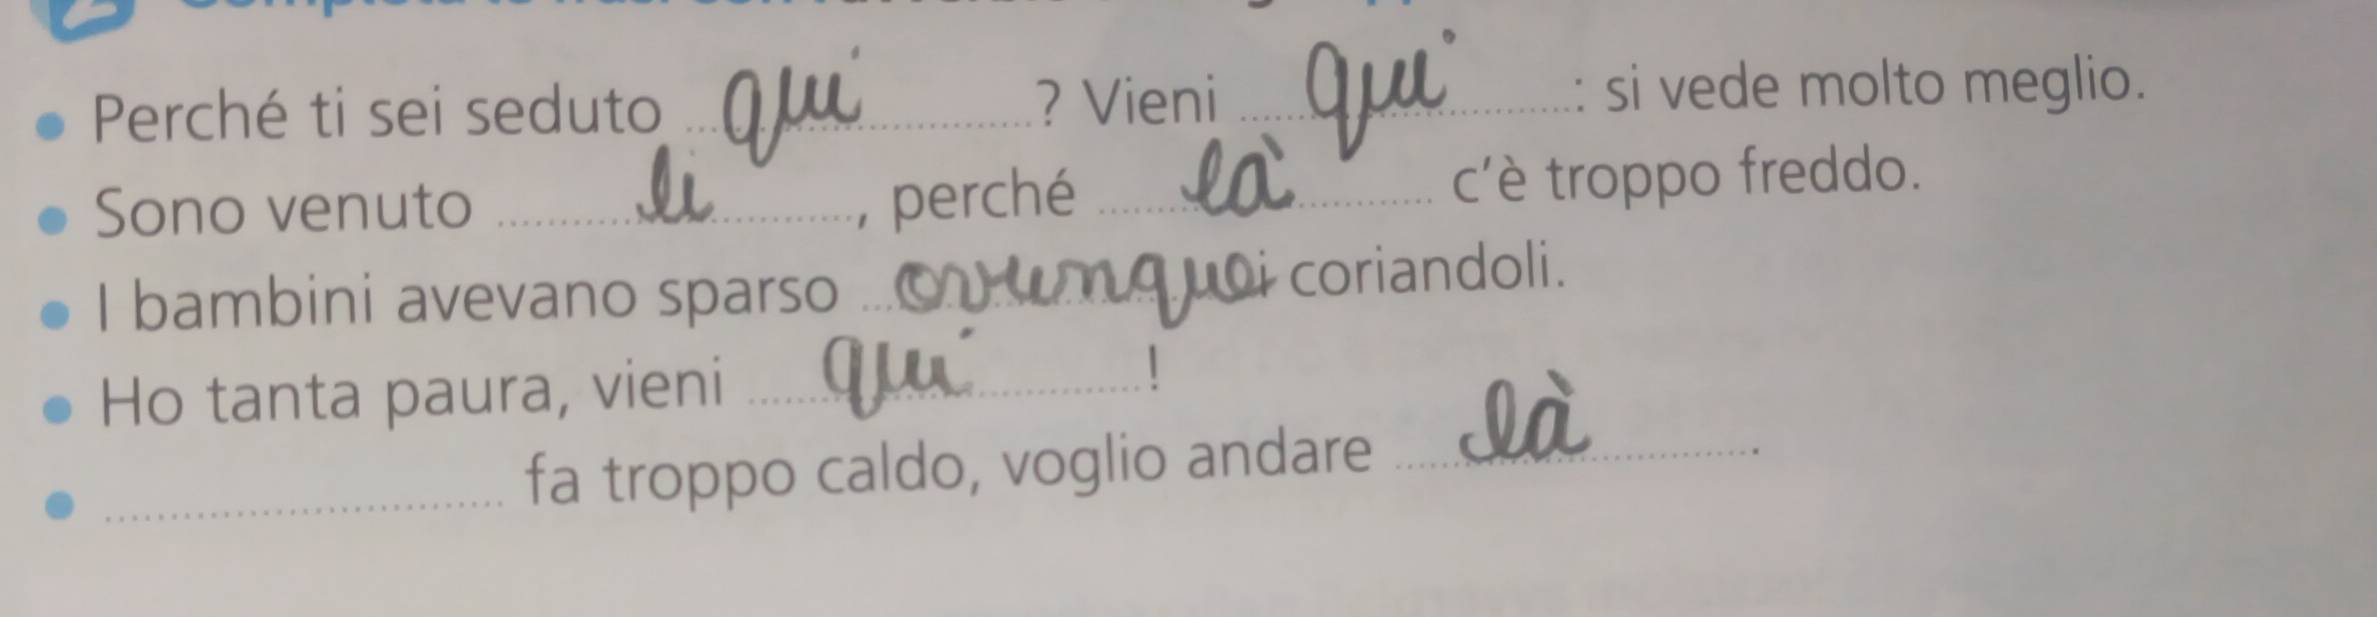 Perché ti sei seduto qui? Vieni qui: si vede molto meglio.
Sono venuto li, perché là c'è troppo freddo.
I bambini avevano sparso ovunque i coriandoli.
Ho tanta paura, vieni qui!
.............................. fa troppo caldo, voglio andare là.